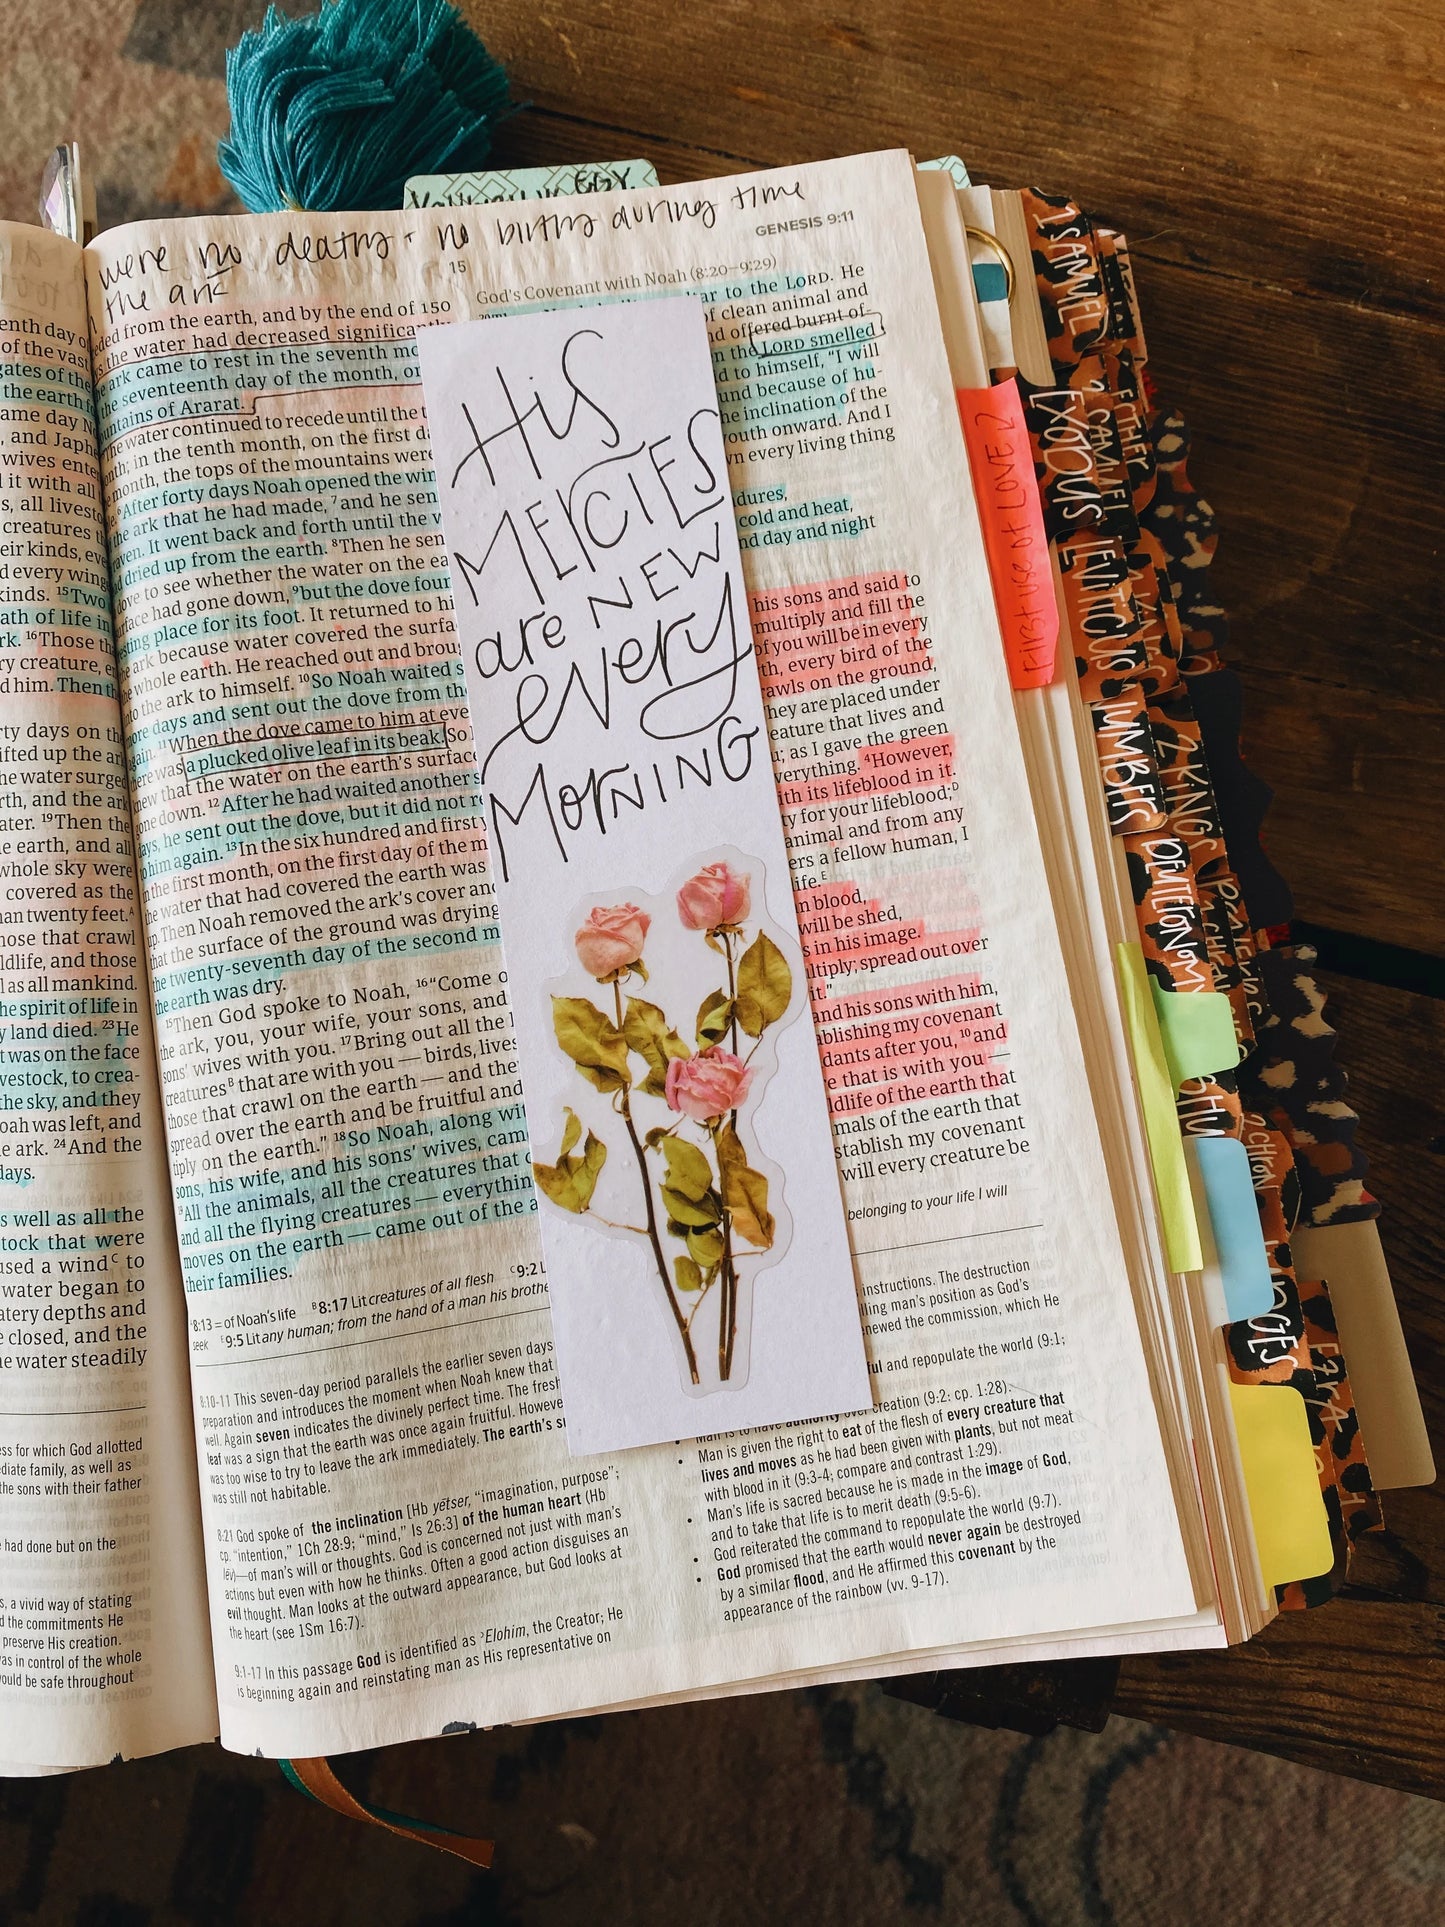 were no deaths + no births during time
the ark
15
GENESIS 9:11
enth day of
of the vast
gates of the
the earth
ame day N
, and Japh
wives ente
d it with all
s, all livesto
creatures
eir kinds, eve
d every wing
kinds. 15Two
ath of life in
rk. 16Those
ry creature,
d him. Then
rty days on the
ifted up the ark
he water surged
rth, and the ark
ater. 19Then the
e earth, and all
whole sky were
covered as the
han twenty feet.A
hose that crawl
ldlife, and those
l as all mankind.
he spirit of life in
y land died. 23He
t was on the face
vestock, to crea-
the sky, and they
oah was left, and
e ark. 24And the
days.
s well as all the
tock that were
used a windC to
water began to
atery depths and
e closed, and the
he water steadily
ess for which God allotted
ediate family, as well as
the sons with their father
had done but on the
s, a vivid way of stating
d the commitments He
preserve His creation.
as in control of the whole
ould be safe throughout
ded from the earth, and by the end of 150
the water had decreased significantly
ark came to rest in the seventh mo
the seventeenth day of the month, on
untains of Ararat.
The water continued to recede until the t
nth; in the tenth month, on the first da
month, the tops of the mountains were
6After forty days Noah opened the win
the ark that he had made, 7and he sen
raven. It went back and forth until the w
d dried up from the earth. 8Then he sen
dove to see whether the water on the ea
surface had gone down, 9but the dove four
sting place for its foot. It returned to hi
ark because water covered the surfa
whole earth. He reached out and brou
nto the ark to himself. 10So Noah waited s
more days and sent out the dove from the
again. 11When the dove came to him at eve
there was a plucked olive leaf in its beak. So
knew that the water on the earth's surface
gone down. 12After he had waited another s
days, he sent out the dove, but it did not re
to him again. 13In the six hundred and first y
in the first month, on the first day of the m
the water that had covered the earth was
up. Then Noah removed the ark's cover and
that the surface of the ground was drying
the twenty-seventh day of the second m
the earth was dry.
15Then God spoke to Noah, 16"Come o
the ark, you, your wife, your sons, and
sons' wives with you. 17Bring out all the l
creaturesB that are with you — birds, lives
those that crawl on the earth — and they
spread over the earth and be fruitful and
tiply on the earth." 18So Noah, along wit
sons, his wife, and his sons' wives, cam
19All the animals, all the creatures that c
and all the flying creatures — everythin
moves on the earth — came out of the a
their families.
God's Covenant with Noah (8:20–9:29)
ar to the LORD. He
of clean animal and
nd offered burnt of-
n the LORD smelled
d to himself, "I will
und because of hu-
he inclination of the
outh onward. And I
wn every living thing
dures,
cold and heat,
nd day and night
his sons and said to
multiply and fill the
of you will be in every
th, every bird of the
rawls on the ground,
hey are placed under
eature that lives and
; as I gave the green
verything. 4However,
th its lifeblood in it.
ty for your lifeblood;D
animal and from any
ers a fellow human, I
life.E
n blood,
will be shed,
s in his image.
ltiply; spread out over
it."
and his sons with him,
ablishing my covenant
dants after you, 10and
e that is with you —
ldlife of the earth that
mals of the earth that
stablish my covenant
will every creature be
His
MERCIES
are NEW
every
MORNING
8:13 = of Noah's life B8:17 Lit creatures of all flesh C9:2 L
seek E9:5 Lit any human; from the hand of a man his brothe
belonging to your life I will
8:10-11 This seven-day period parallels the earlier seven days
preparation and introduces the moment when Noah knew that
well. Again seven indicates the divinely perfect time. The fresh
leaf was a sign that the earth was once again fruitful. Howeve
was too wise to try to leave the ark immediately. The earth's su
was still not habitable.
8:21 God spoke of the inclination [Hb yētser, "imagination, purpose";
cp. "intention," 1Ch 28:9; "mind," Is 26:3] of the human heart (Hb
lēv)—of man's will or thoughts. God is concerned not just with man's
actions but even with how he thinks. Often a good action disguises an
evil thought. Man looks at the outward appearance, but God looks at
the heart (see 1Sm 16:7).
9:1-17 In this passage God is identified as ʾElohim, the Creator; He
is beginning again and reinstating man as His representative on
instructions. The destruction
lling man's position as God's
enewed the commission, which He
ful and repopulate the world (9:1;
• Man is to have authority over creation (9:2; cp. 1:28).
• Man is given the right to eat of the flesh of every creature that
lives and moves as he had been given with plants, but not meat
with blood in it (9:3-4; compare and contrast 1:29).
• Man's life is sacred because he is made in the image of God,
and to take that life is to merit death (9:5-6).
• God reiterated the command to repopulate the world (9:7).
• God promised that the earth would never again be destroyed
by a similar flood, and He affirmed this covenant by the
appearance of the rainbow (vv. 9-17).
First use of LOVE
EXODUS
LEVITICUS
NUMBERS
DEUTERONOMY
SHU
JUDGES
1 SAMUEL
2 SAMUEL
2 KINGS
2 CHRON
EZRA